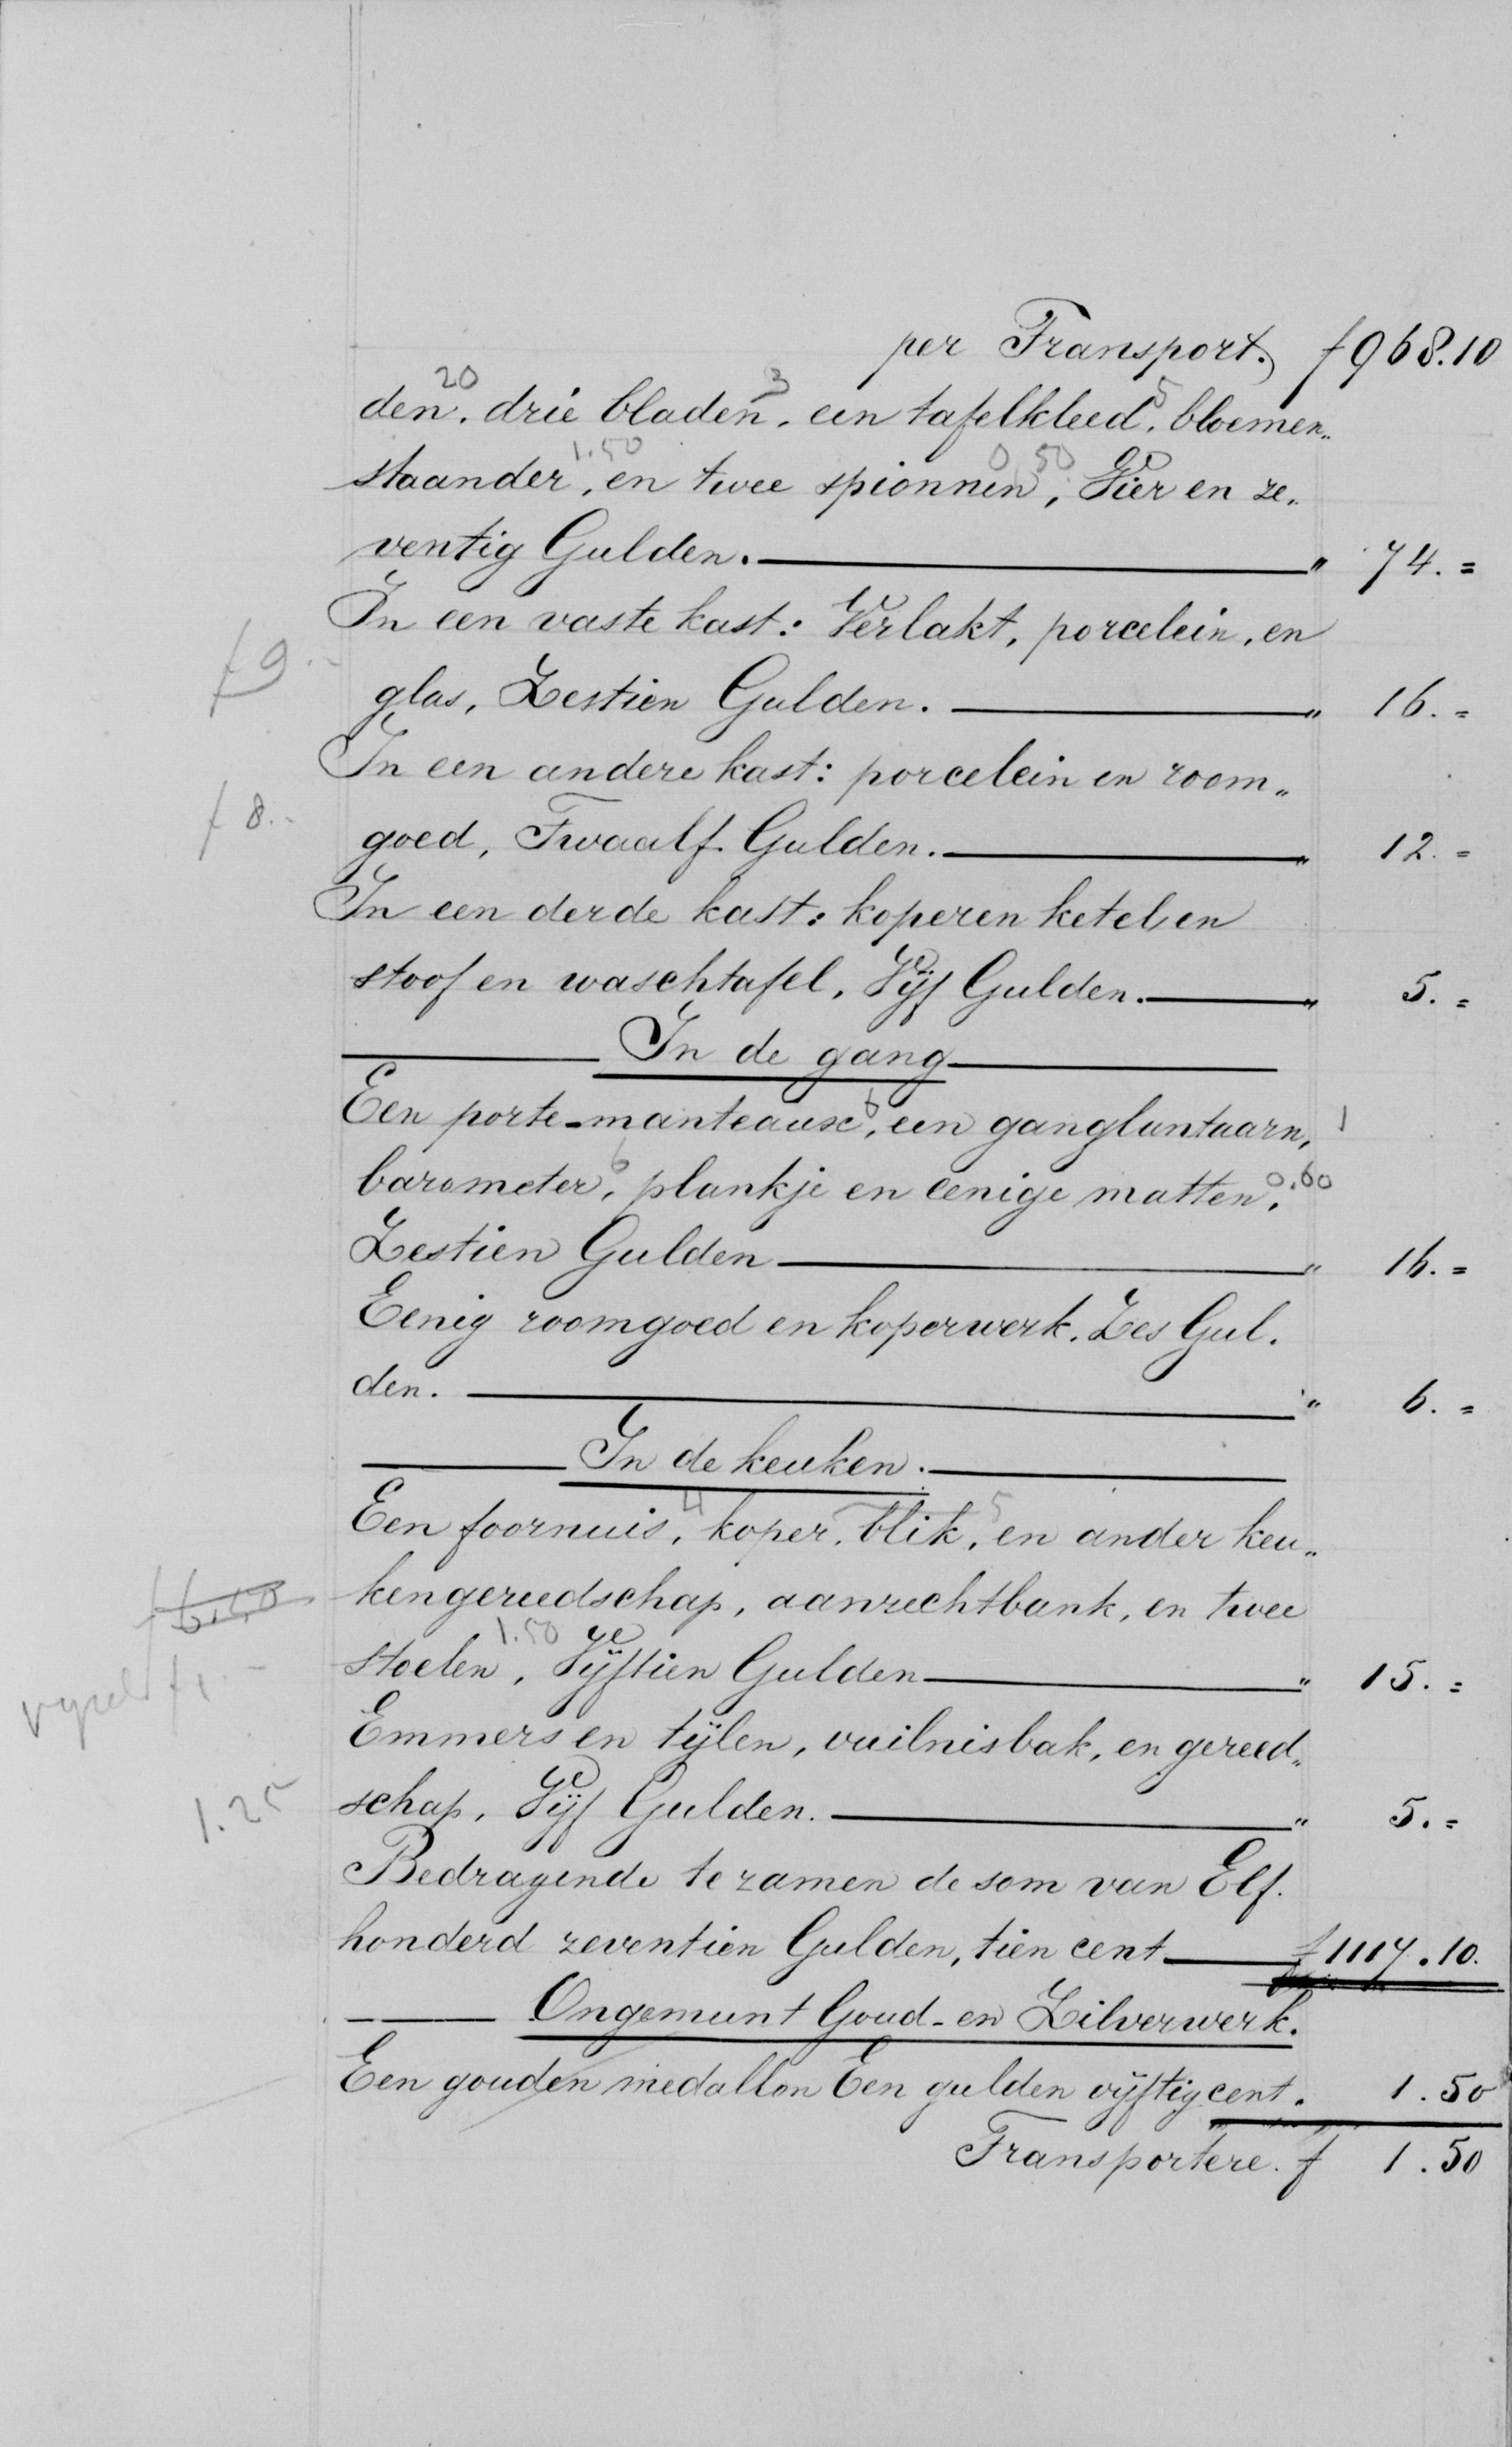 per Transport. f 968.10
20 3 5
den, drie bladen, een tafelkleed, bloemen„
1.50 0 50
staander, en twee spionnen, Vier en ze„
ventig Gulden. " 74. =
In een vaste kast: Verlakt, porcelein, en
f 9.-
glas, Zestien Gulden. " 16. =
In een andere kast: porcelein en room„
f 8.-
goed, Twaalf Gulden. " 12. =
In een derde kast: koperen ketel en
stoof en waschtafel, Vijf Gulden. " 5. =
In de gang
6 1
Een porte-manteaux, een ganglantaarn,
6 0.60
barometer, plankje en eenige matten,
Zestien Gulden " 16. =
Eenig roomgoed en koperwerk. Zes Gul.
den. " 6. =
In de keuken.
4 5
Een foornuis, koper, blik, en ander keu„
f 6.50
kengereedschap, aanrechtbank, en twee
1.50
stoelen, Vijftien Gulden " 15. =
f 1.-
Emmers en tijlen, vuilnisbak, en gereed„
1.25
schap, Vijf Gulden. " 5. =
Bedragende te zamen de som van Elf.
honderd zeventien Gulden, tien cent f 1117.10.
Ongemunt Goud- en Zilverwerk.
Een gouden medallon Een gulden vijftig cent. 1.50
Transportere. f 1.50